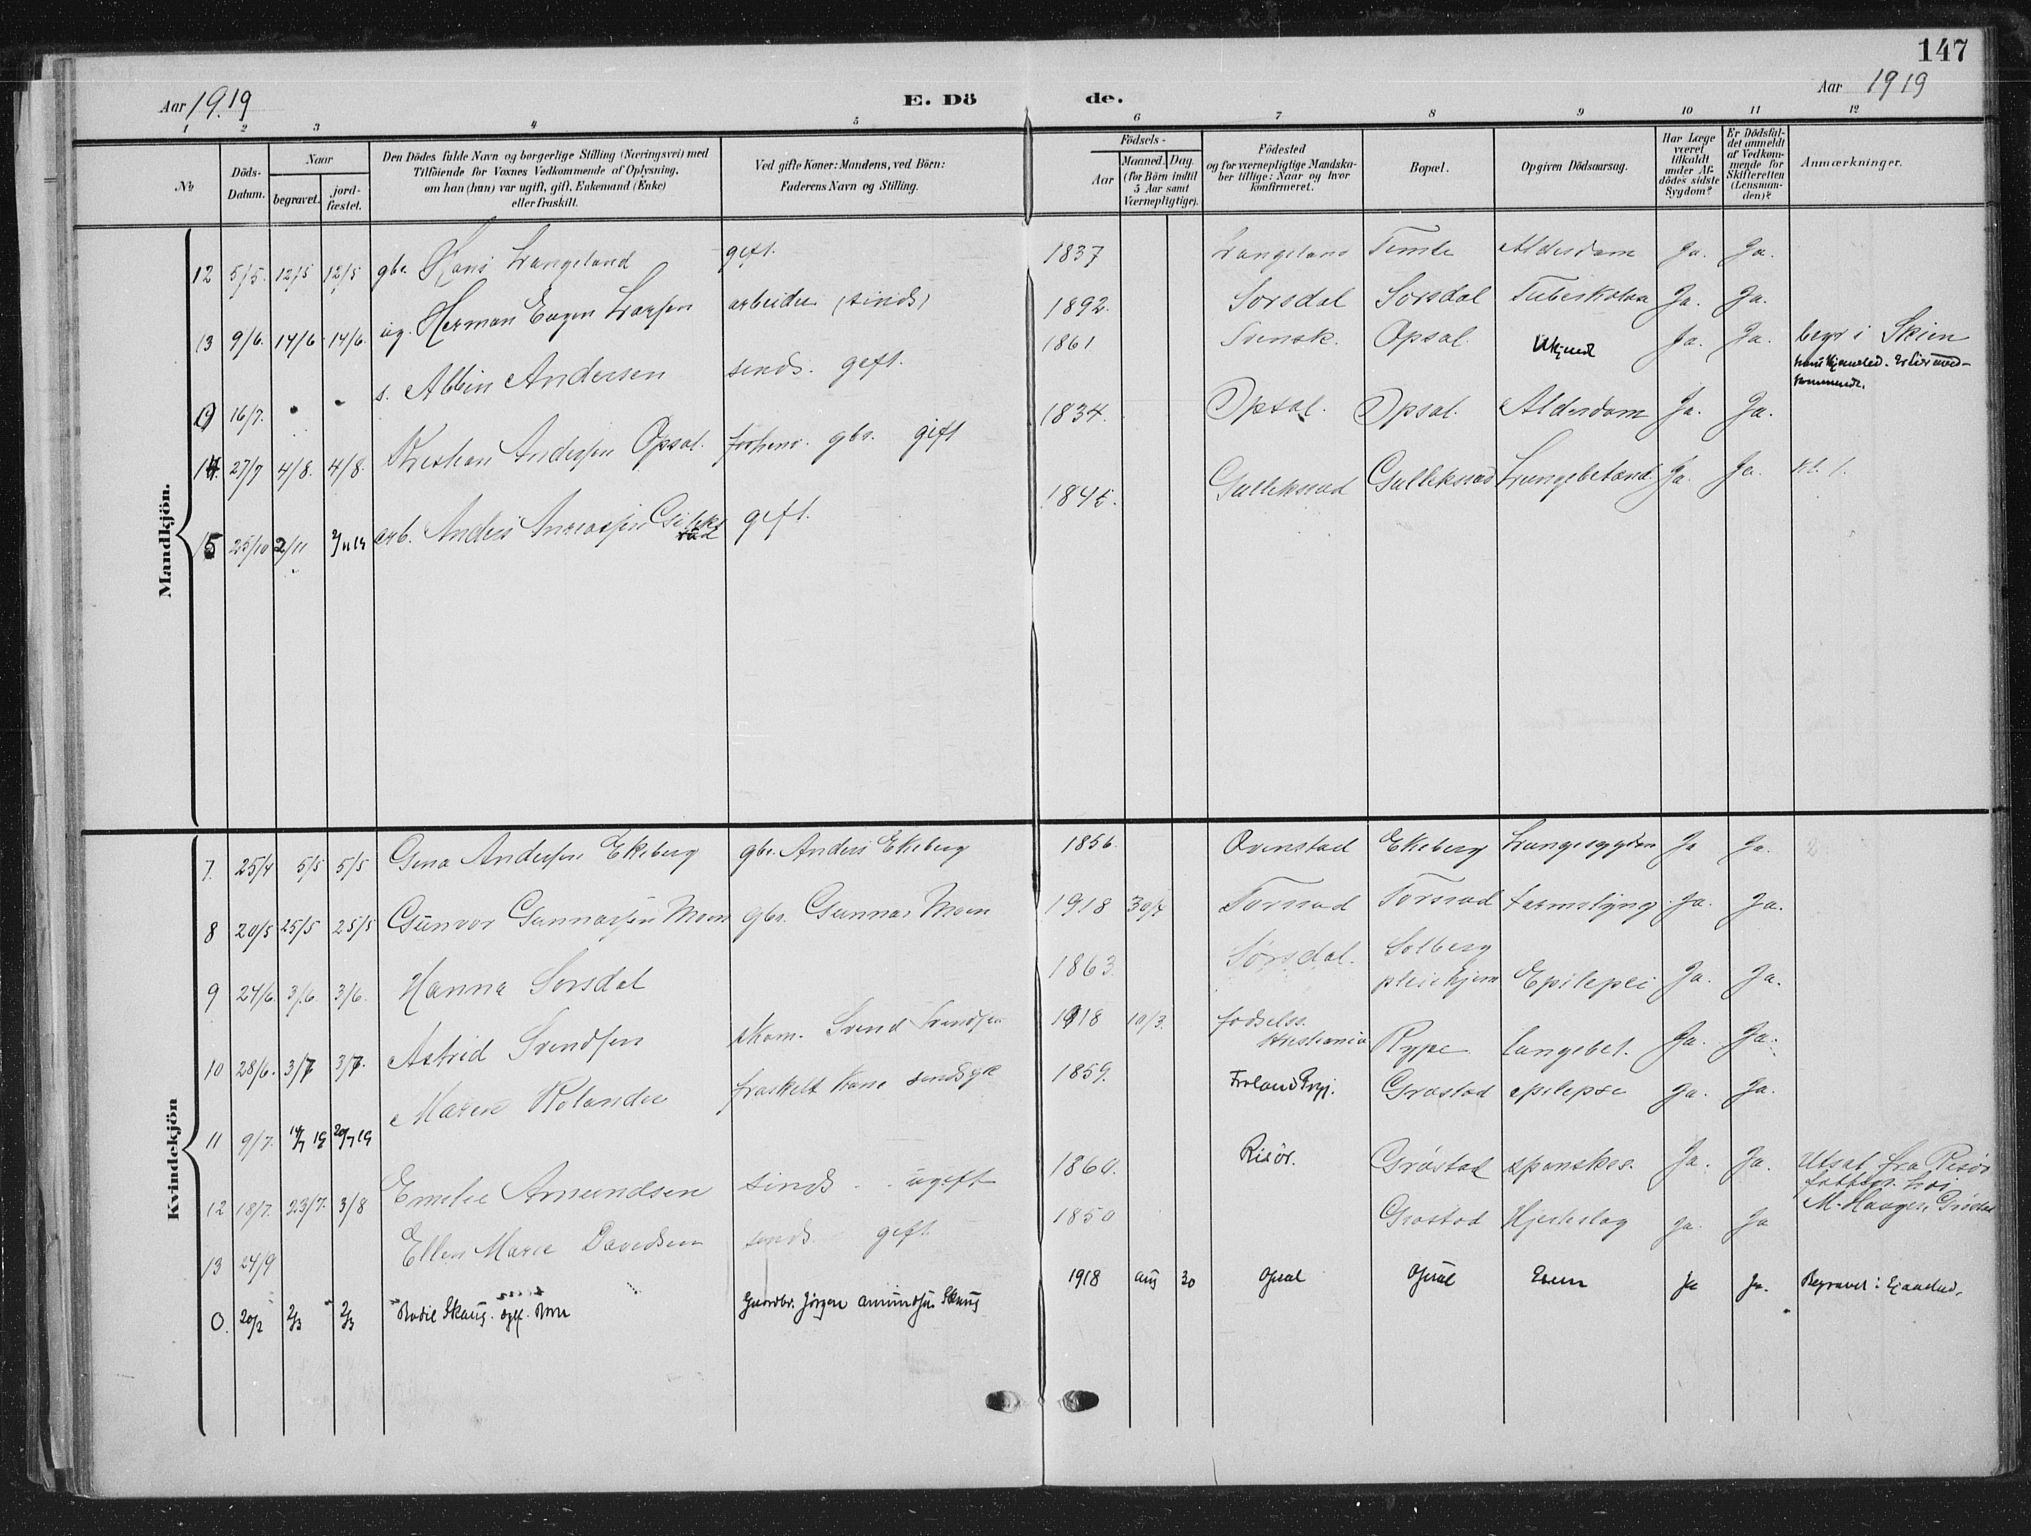 147
Aar 1919
E. Dö
de.
Aar 1919
1 2 3 4 5 6 7 8 9 10 11 12
No
Döds-Datum.
Naar
begravet.
jord-fæstet.
Den Dödes fulde Navn og borgerlige Stilling (Næringsvei) med
Tilföiende for Voxnes Vedkommende af Oplysning,
om han (hun) var ugift, gift, Enkemand (Enke)
eller fraskilt.
Ved gifte Koner: Mandens, ved Börn:
Faderens Navn og Stilling.
Födsels-
Aar
Maaned. Dag.
(for Börn indtil
5 Aar samt
Værnepligtige).
Födested
og for værnepligtige Mandska-
ber tillige: Naar og hvor
konfirmeret.
Bopæl.
Opgiven Dödsaarsag.
Har Læge
været
tilkaldt
under Af-
dödes sidste
Sygdom?
Er Dödsfal-
det anmeldt
af Vedkom-
mende for
Skifteretten
(Lensman-
den)?
Anmærkninger.
Mandkjön.
12 5/5. 12/5 12/5 gbr. Hans Langeland gift. 1837 Langeland Temte Alderdom Ja. Ja.
13 9/6. 14/6 14/6. ug. Herman Eugen Larsen arbeider (sinds) 1892. Sorsdal Sorsdal Tuberkulose Ja. Ja.
0 16/7. s. Albin Andersen sinds. gift. 1861 Svensk. Opsal. Ukjendt Ja. Ja. begr i Skien
14 27/7 4/8. 4/8. Kristian Andersen Opsal. forhenv. gbr. gift 1834. Opsal. Opsal. Alderdom Ja. Ja.
15 25/10 2/11 2/11 19 arb. Anders Andreassen Gulleksrud gift. 1845. Gulleksrud Gulleksrud Lungebetænd. Ja. Ja.
Kvindekjön
7. 25/4 5/5 5/5 Gina Andersen Ekeberg gbr. Anders Ekeberg 1856. Ovenstad Ekeberg Lungesygdom Ja Ja.
8 20/5 25/5 25/5 Gunvor Gunnarsen Moen gbr. Gunnar Moen 1918 30/7 Torsrud Torsrud tarmslyng. Ja. Ja.
9 24/6. 3/6. 3/6. Hanna Sorsdal 1863. Sørsdal. Solberg
pleiehjem Epilepsi Ja. Ja.
10 28/6. 3/7 3/7. Astrid Svendsen skom. Svend Svendsen 1918 10/3. fødselss.
Kristiania Rype Lungebet. Ja. Ja.
11 9/7. 14/7 19 20/7 19 Maren Rolandie fraskilt kone sindssyk 1859. Gråstad epilepsi Ja. Ja.
12 18/7. 23/7. 3/8 Emelie Amundsen sinds. ugift 1860. Risör. Gråstad spanskes. Ja. Ja. Utsat fra Risör
fattigv. hos
M. Haagen. Gråstad
13 24/9 Ellen Marie Davidsen sinds. gift. 1850 Gråstad Hjerteslag Ja. Ja
0. 20/2 2/3 2/3 Bodil Skaug. Gaardbr. Jörgen Amundsen Skaug 1918 aug 30 Opsal Opsal Ja Ja. Begravet i